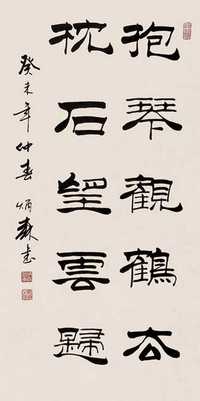 抱琴觀鶴去
枕石望雲歸
癸未年仲春炳森書